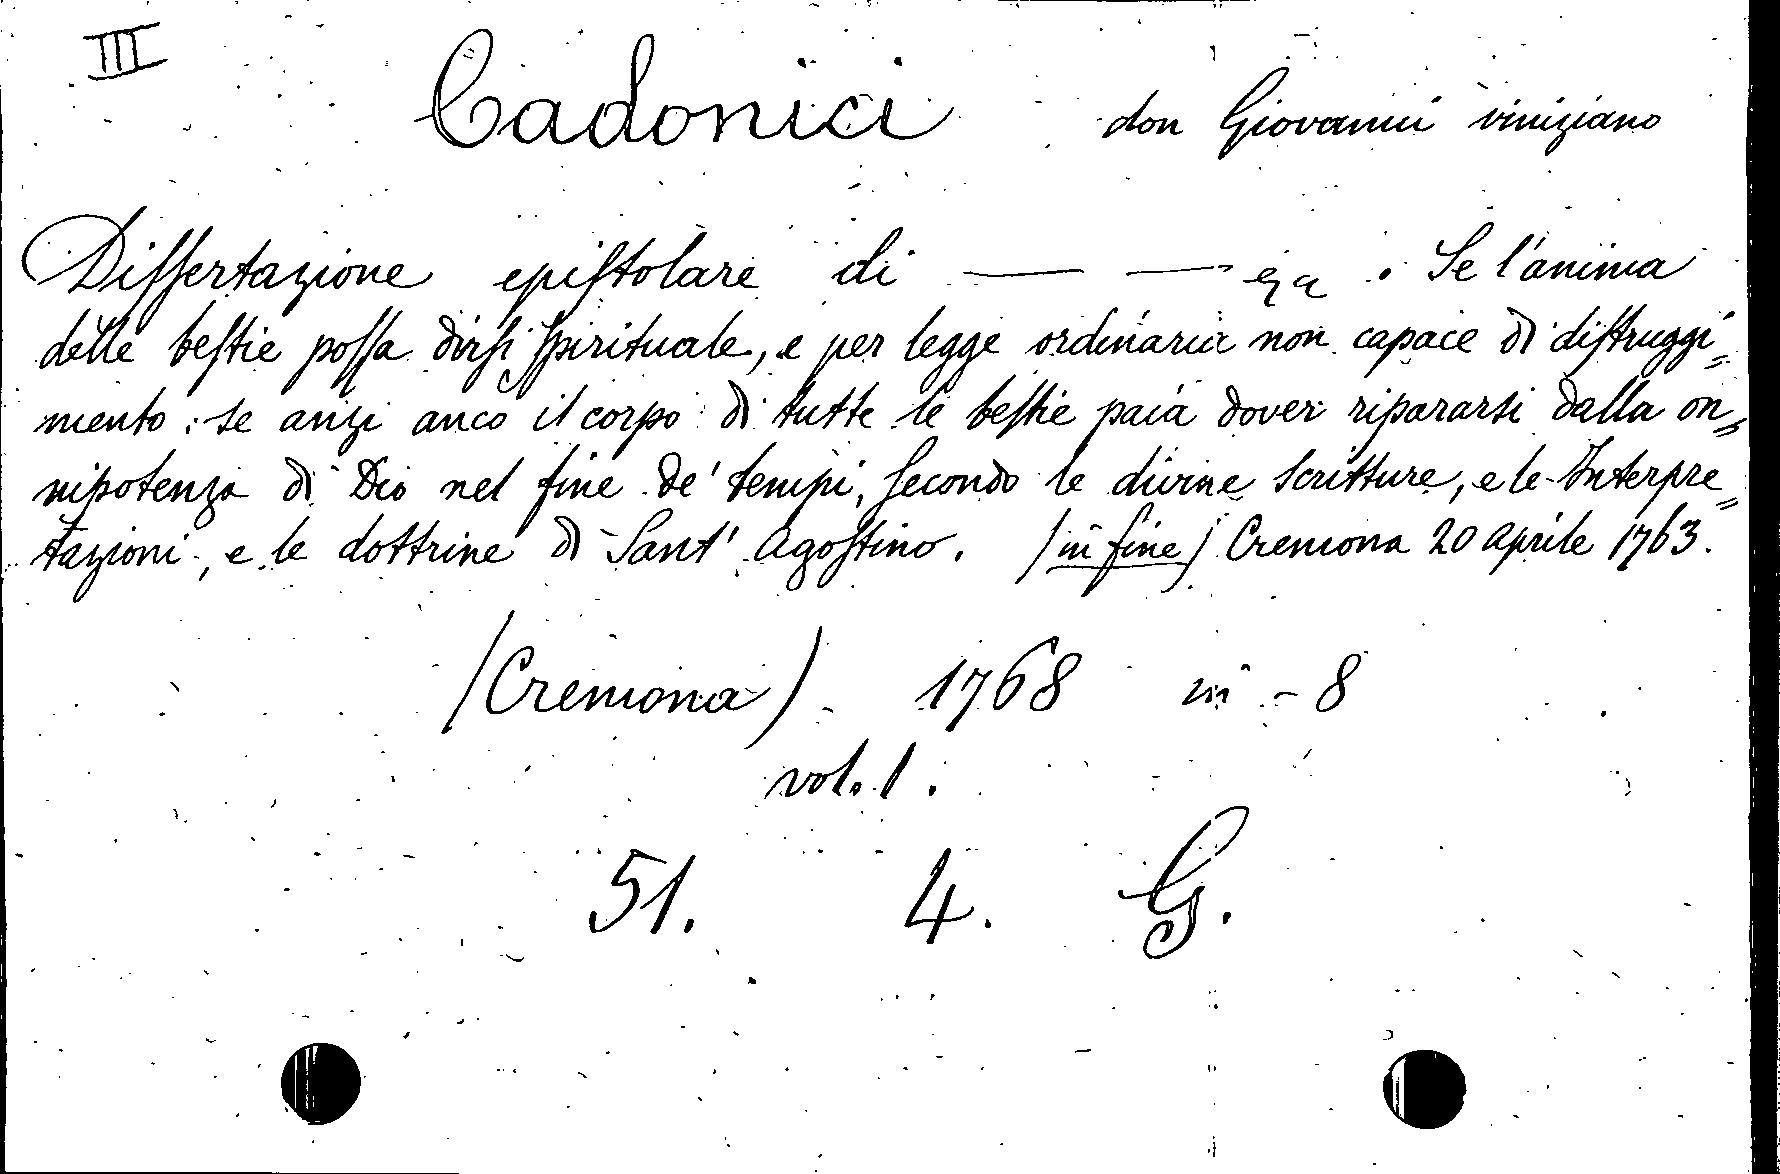 III
Cadonici don Giovanni viniziano
Dissertazione epistolare di — — . Se l'anima
delle bestie possa dirsi spirituale, e per legge ordinaria non capace di distruggi=
mento: se anzi anco il corpo di tutte le bestie paia dover ripararsi dalla on=
nipotenza di Dio nel fine de' tempi, secondo le divine scritture, e le Interpre=
tazioni, e le dottrine di Sant' Agostino. (in fine) Cremona 20 aprile 1763.
(Cremona) 1768 in-8
vol. 1.
51. 4. G.